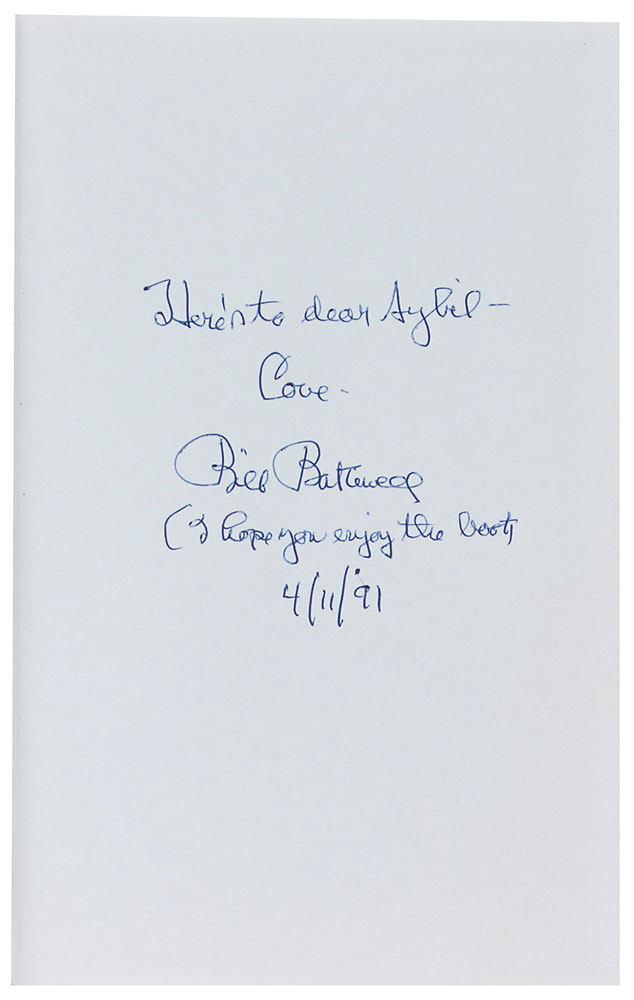 Here's to dear Sybil –
Love -
Bill Battersea
(I hope you enjoy the book)
4/11/91